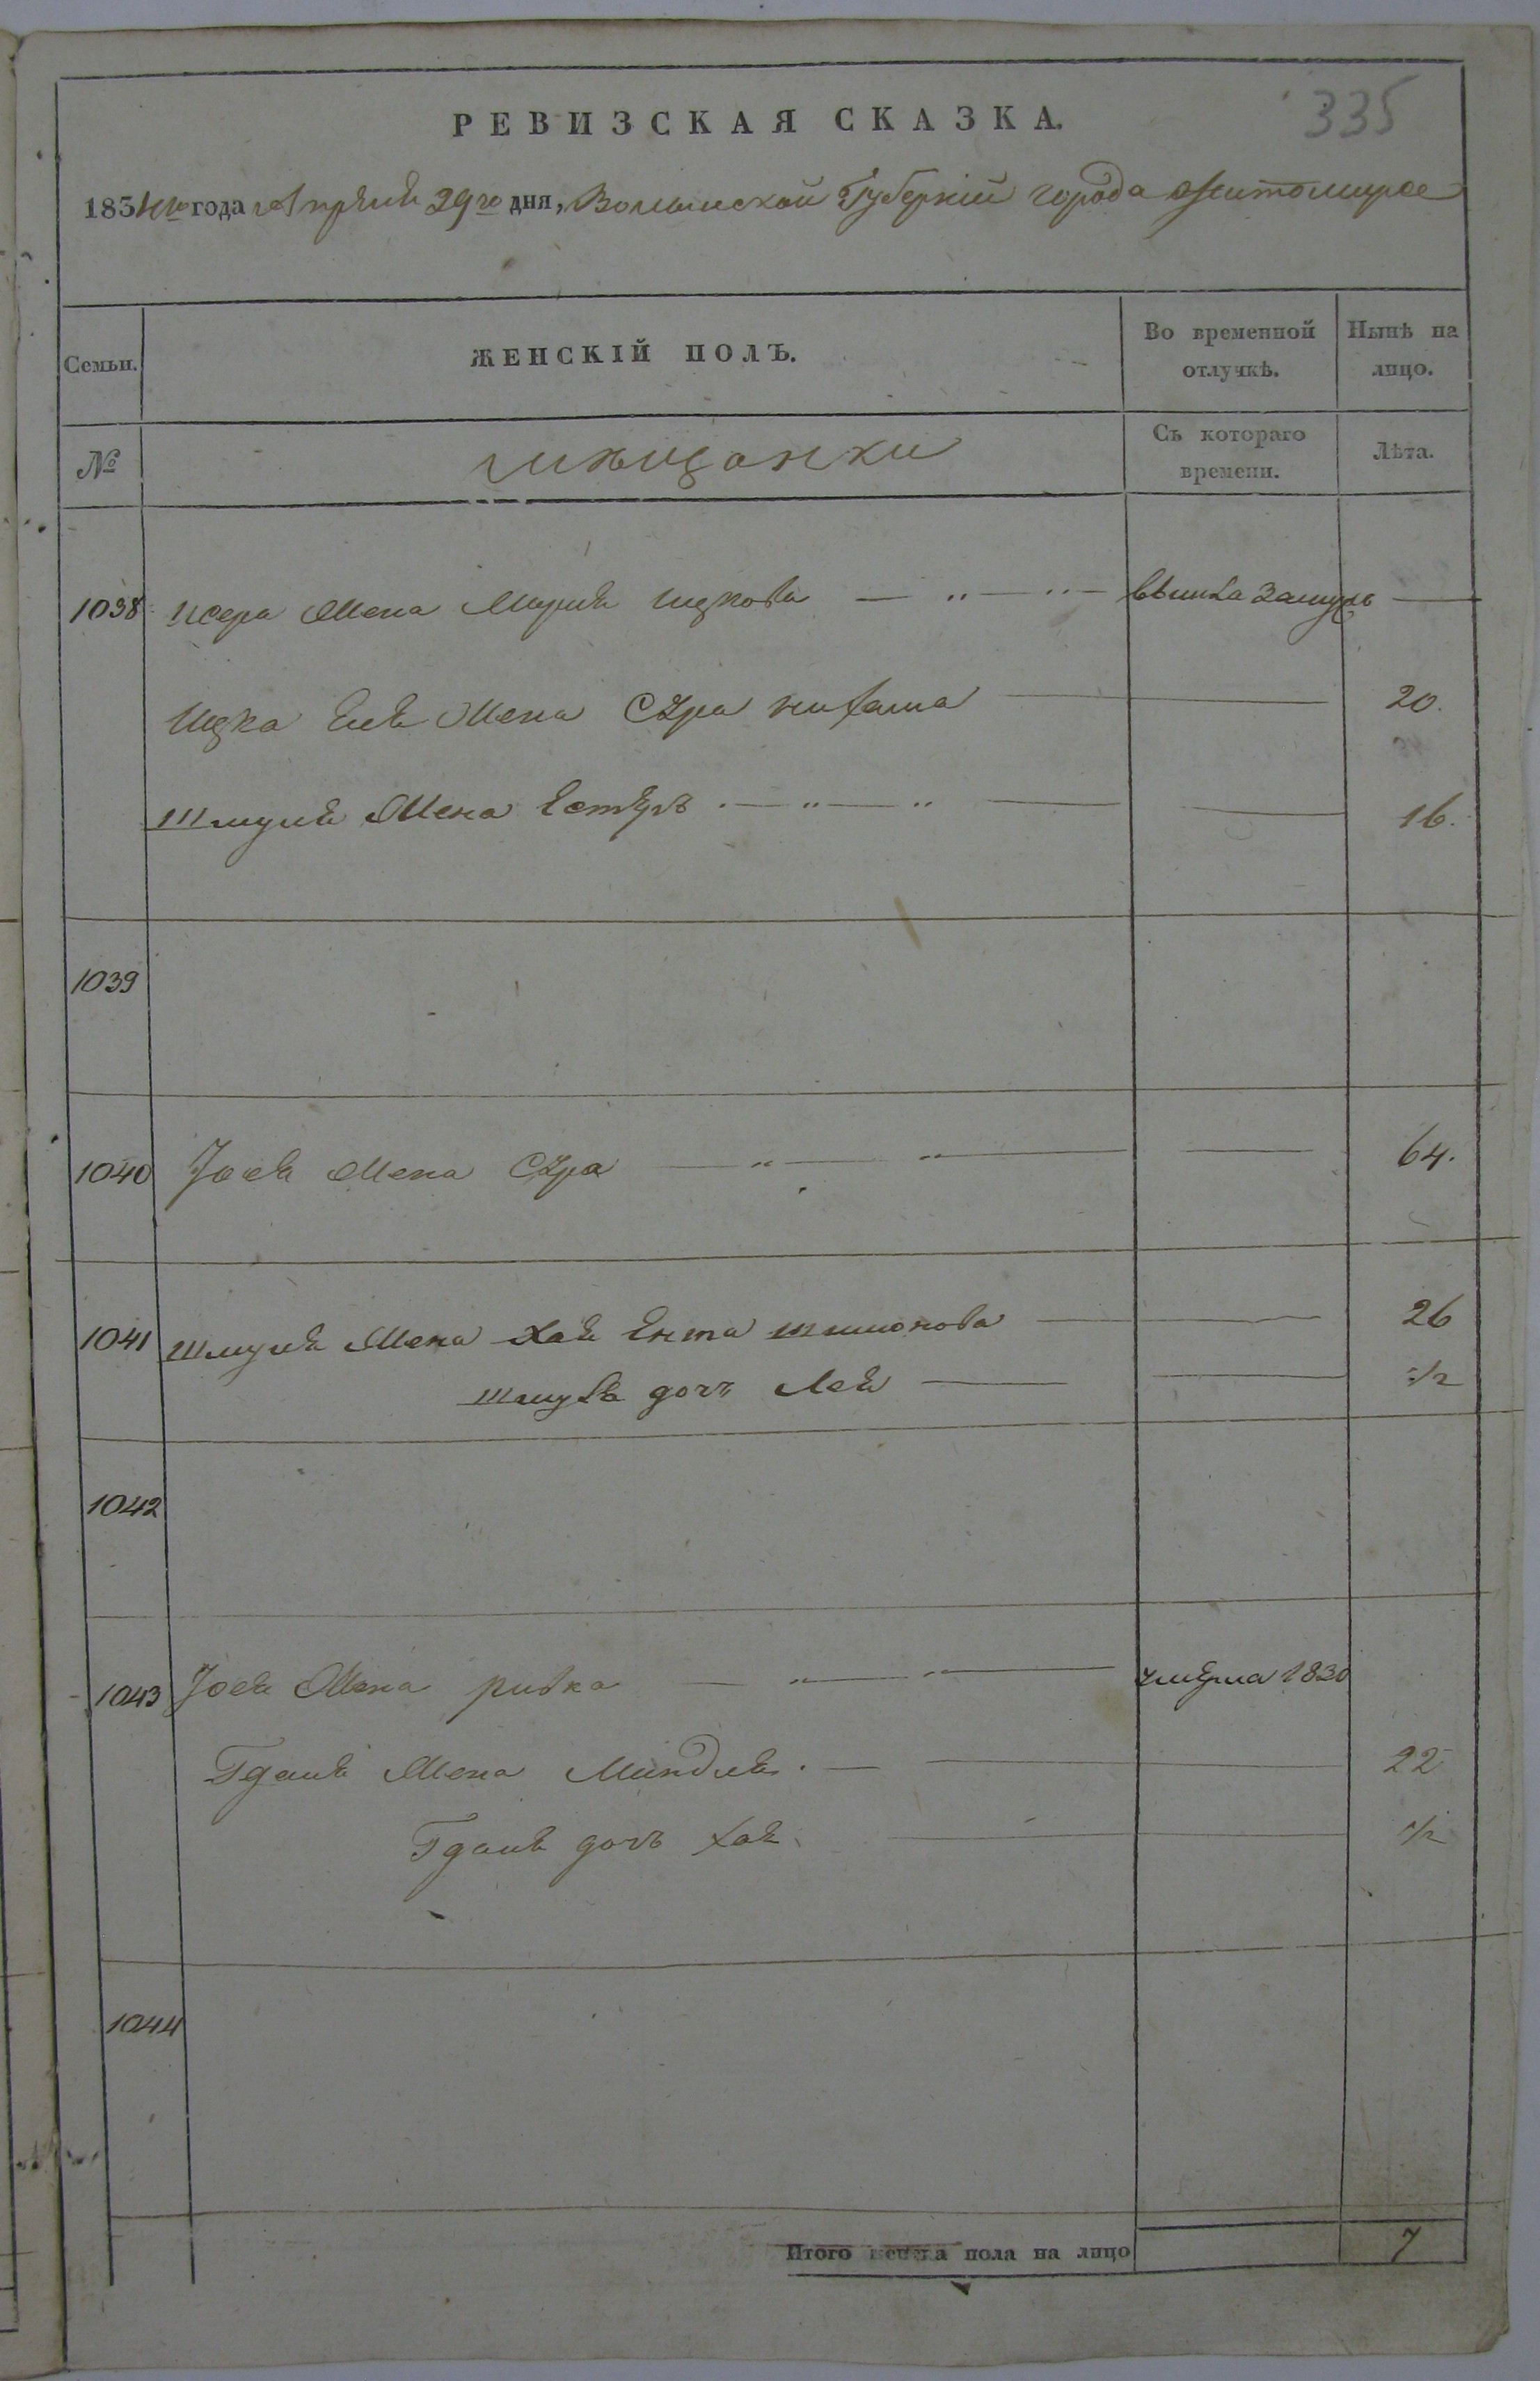 335
РЕВИЗСКАЯ СКАЗКА.
1834го года Апреля 29го дня, Волынской Губернии города Житомира
Семьи. ЖЕНСКІЙ ПОЛЪ. Во временной отлучкѣ. Нынѣ на лицо.
№ мещанки Съ котораго времени. Лѣта.
1038 Исера жена Мариа Ицкова — " — " — вышла замужъ —
Ицка жена Сура 20.
Шмуля Жена Естеръ . — " — " — 16.
1039
1040 Іося жена Сура — " — " — 64.
1041 Шмуля жена Хая Ента Шимонова — 26
Шмуля дочь Лея — 1/2
1042
1043 Іося жена ривка — " — " — умерла 1830
Гдаля жена Миндля . — 22
Гдаля дочь Хая 1/2
1044
Итого женска пола на лицо 7